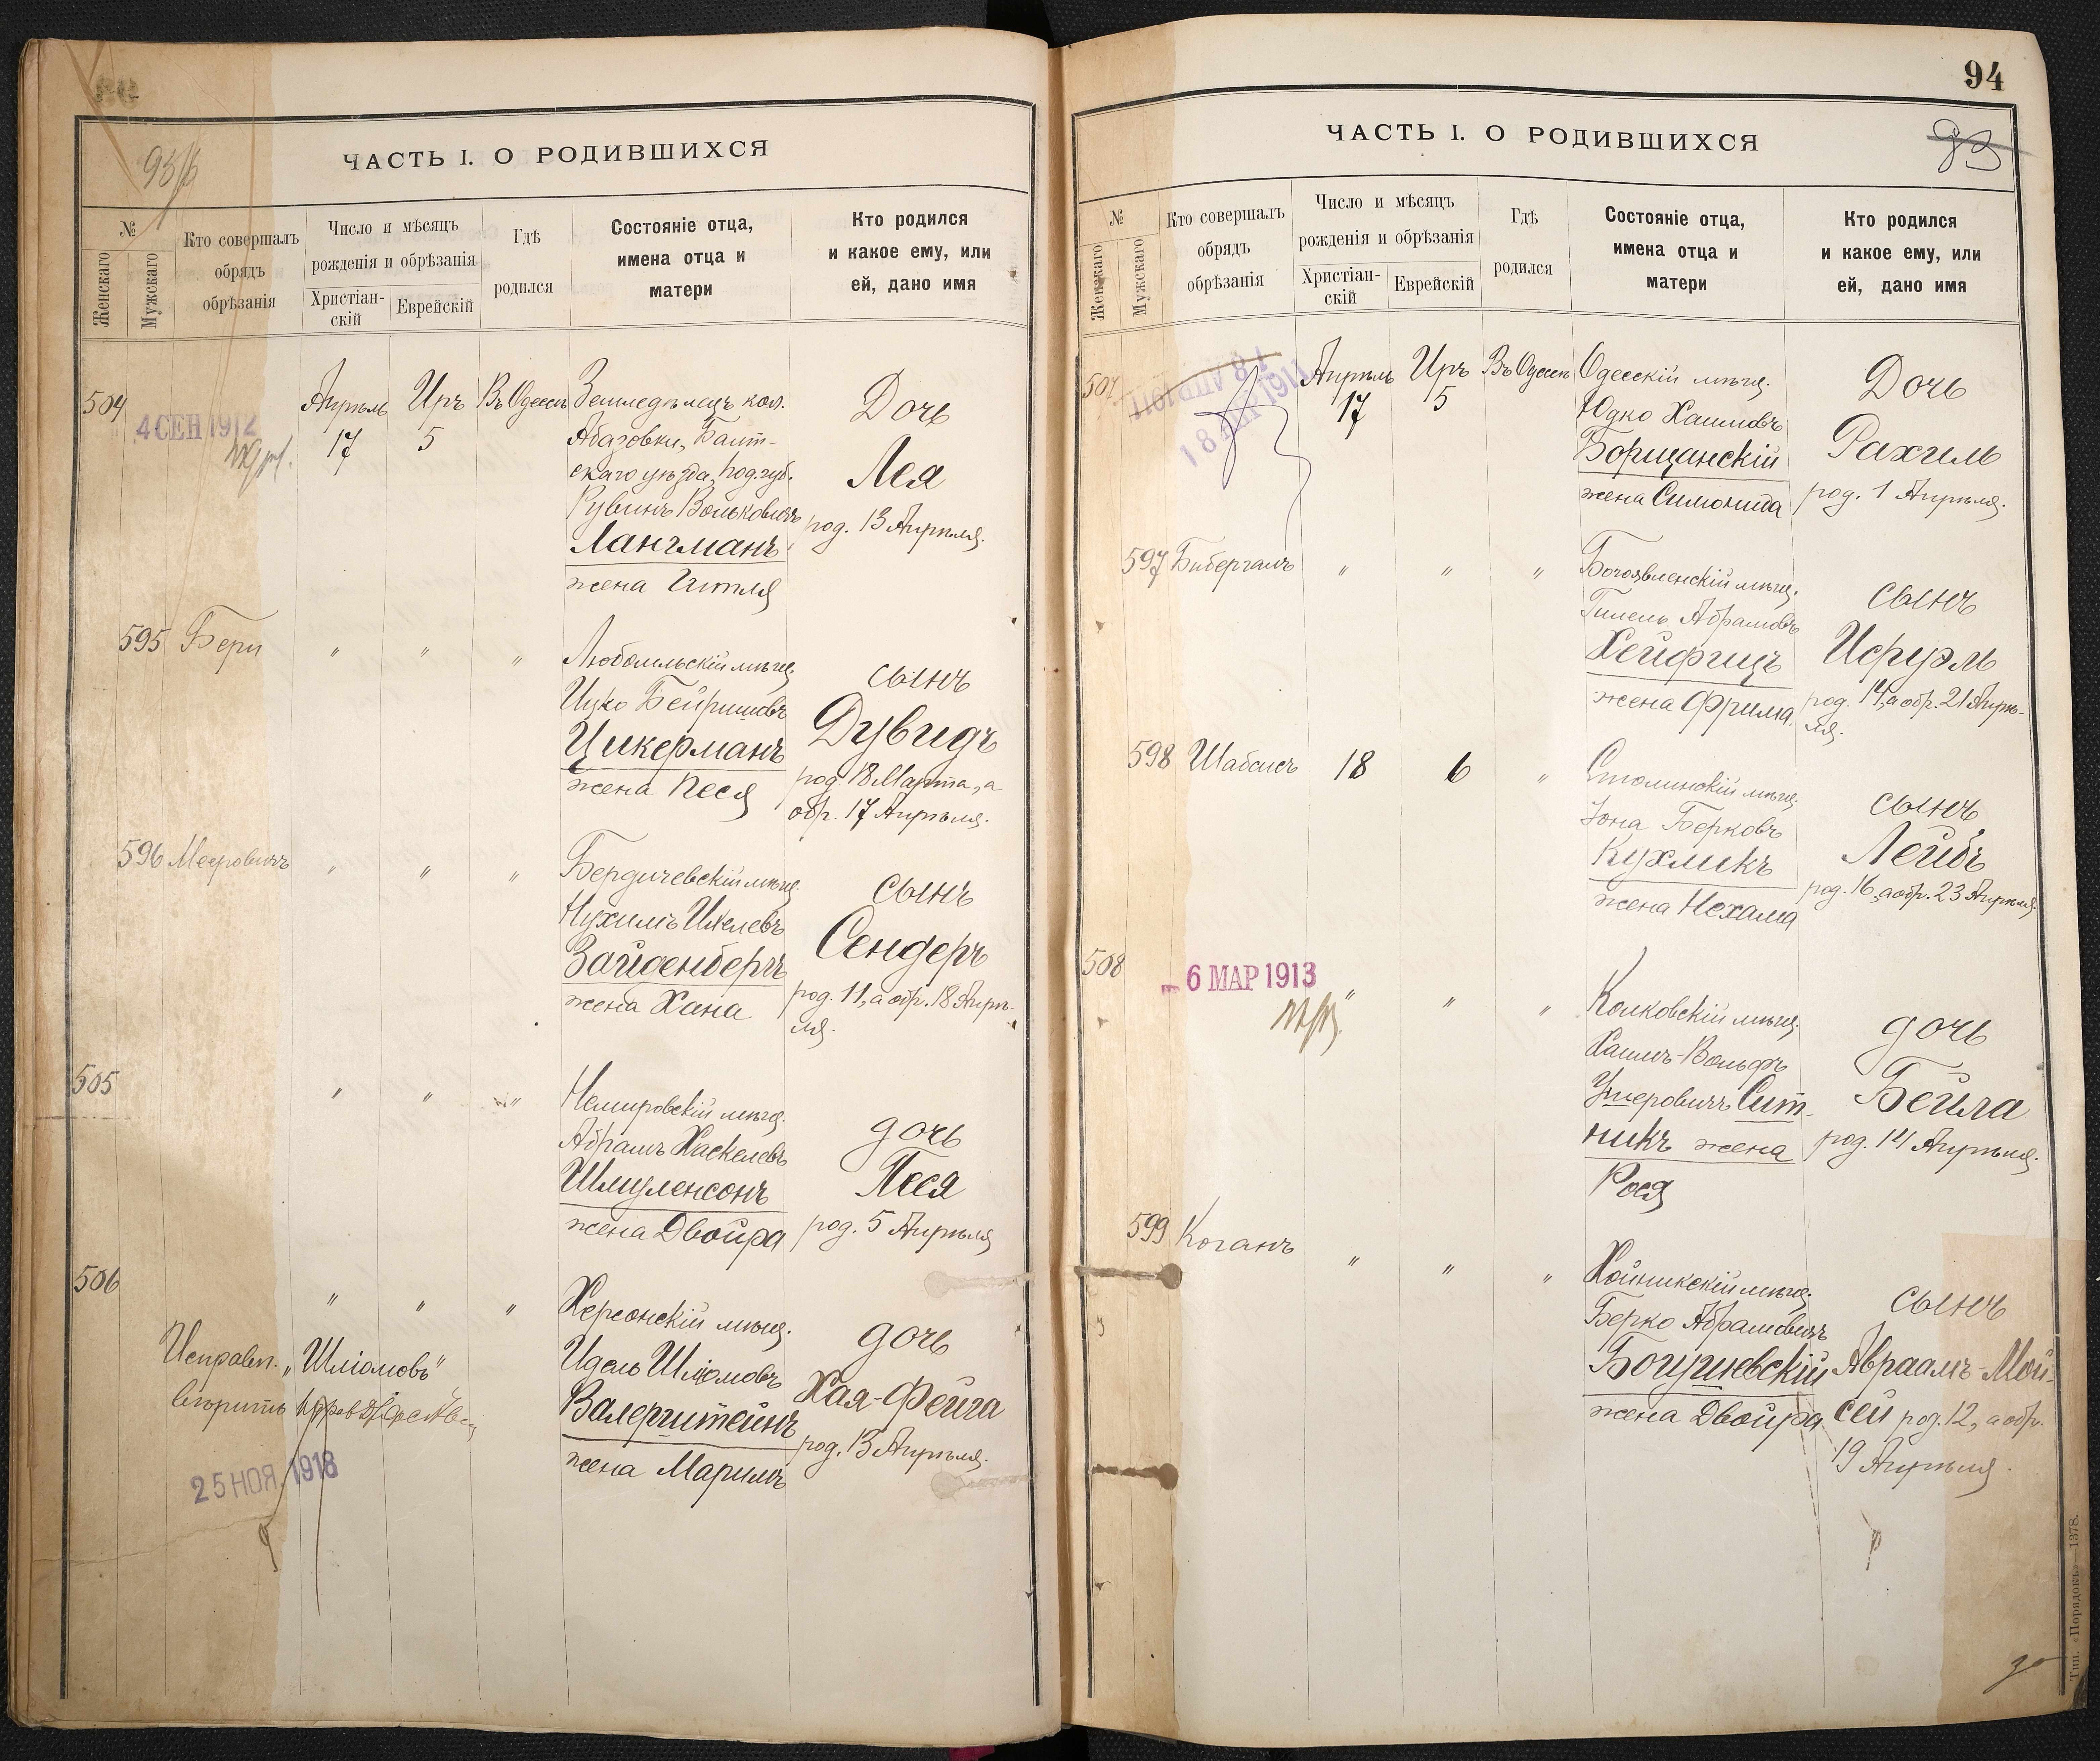 93/б
ЧАСТЬ I. О РОДИВШИХСЯ
№
Женскаго
Мужскаго
Кто совершалъ
обрядъ
обрѣзанія
Число и мѣсяцъ
рожденія и обрѣзанія
Христіан-
скій
Еврейскій
Гдѣ
родился
Состояніе отца,
имена отца и
матери
Кто родился
и какое ему, или
ей, дано имя
504
4 СЕН 1912
Апрѣль
17
Иръ
5
Въ Одессѣ
Земледѣлецъ кол.
Абазовки, Балт-
скаго уѣзда, Под. губ.
Рувинъ Вольковичъ
Лангманъ
жена Гитля
Дочь
Лея
род. 13 Апрѣля.
595 Бери
" " "
Любомльскій мѣщ.
Ицко Бейришовъ
Цикерманъ
жена Песя
сынъ
Дувидъ
род. 18 Марта, а
обр. 17 Апрѣля.
596 Мееровичъ
" " "
Бердичевскій мѣщ.
Нухимъ Ихелевъ
Зайденбергъ
жена Хана
сынъ
Сендеръ
род. 11, а обр. 18 Апрѣ-
ля.
505
" " "
Немировскій мѣщ.
Абрамъ Хаскелевъ
Шмуленсонъ
жена Двойра
дочь
Песя
род. 5 Апрѣля
506
" " "
Исправл. „Шліомовъ"
вѣрить
25 НОЯ 1918
Херсонскій мѣщ.
Идель Шліомовъ
Валерштейнъ
жена Маримъ
дочь
Хая-Фейга
род. 13 Апрѣля.
94
93
ЧАСТЬ I. О РОДИВШИХСЯ
№
Женскаго
Мужскаго
Кто совершалъ
обрядъ
обрѣзанія
Число и мѣсяцъ
рожденія и обрѣзанія
Христіан-
скій
Еврейскій
Гдѣ
родился
Состояніе отца,
имена отца и
матери
Кто родился
и какое ему, или
ей, дано имя
507
18 АПР 1911
18 АПР 1911
Апрѣль
17
Иръ
5
Въ Одессѣ
Одесскій мѣщ.
Юдко Хаимовъ
Борщанскій
жена Симонида
Дочь
Рахиль
род. 1 Апрѣля.
597 Бибергалъ
" " "
Богоявленскій мѣщ.
Гилель Абрамовъ
Хейфицъ
жена Фрима.
сынъ
Исруэль
род. 14, а обр. 21 Апрѣ-
ля.
598 Шабсисъ
18
6
"
Столинскій мѣщ.
Іона Берковъ
Кухликъ
жена Нехама
сынъ
Лейбъ
род. 16, а обр. 23 Апрѣля.
508
6 МАР 1913
" " "
Колковскій мѣщ.
Хаимъ-Вольфъ
Ушеровичъ Сит-
никъ жена
Рося
дочь
Бейла
род. 14 Апрѣля.
599 Коганъ
" " "
Хойникскій мѣщ.
Берко Абрамовичъ
Богушевскій
жена Двойра
сынъ
Авраамъ-Мой-
сей род. 12, а обр.
19 Апрѣля.
Тип. «Порядокъ»—1378.